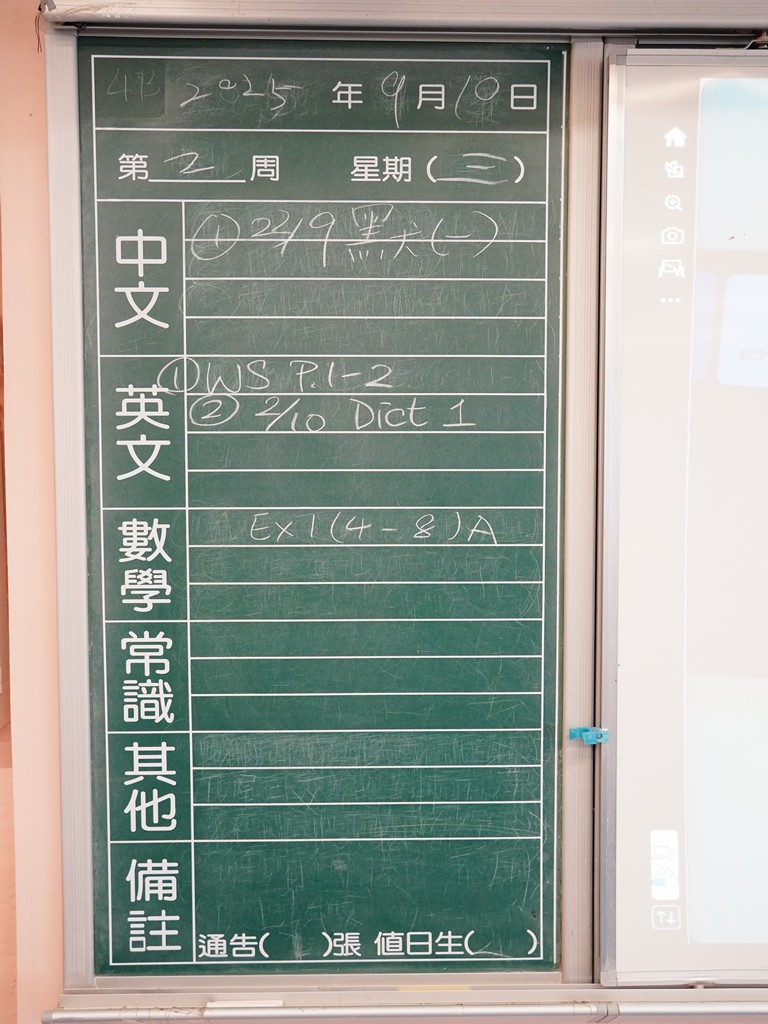 4B 2025 年 9 月 10 日
第 2 周 星期 (三)
中文
① 22/9 默(一)
英文
① WS P.1-2
② 2/10 Dict 1
數學
Ex 1 (4-8) A
常識
其他
備註
通告( )張 值日生( )